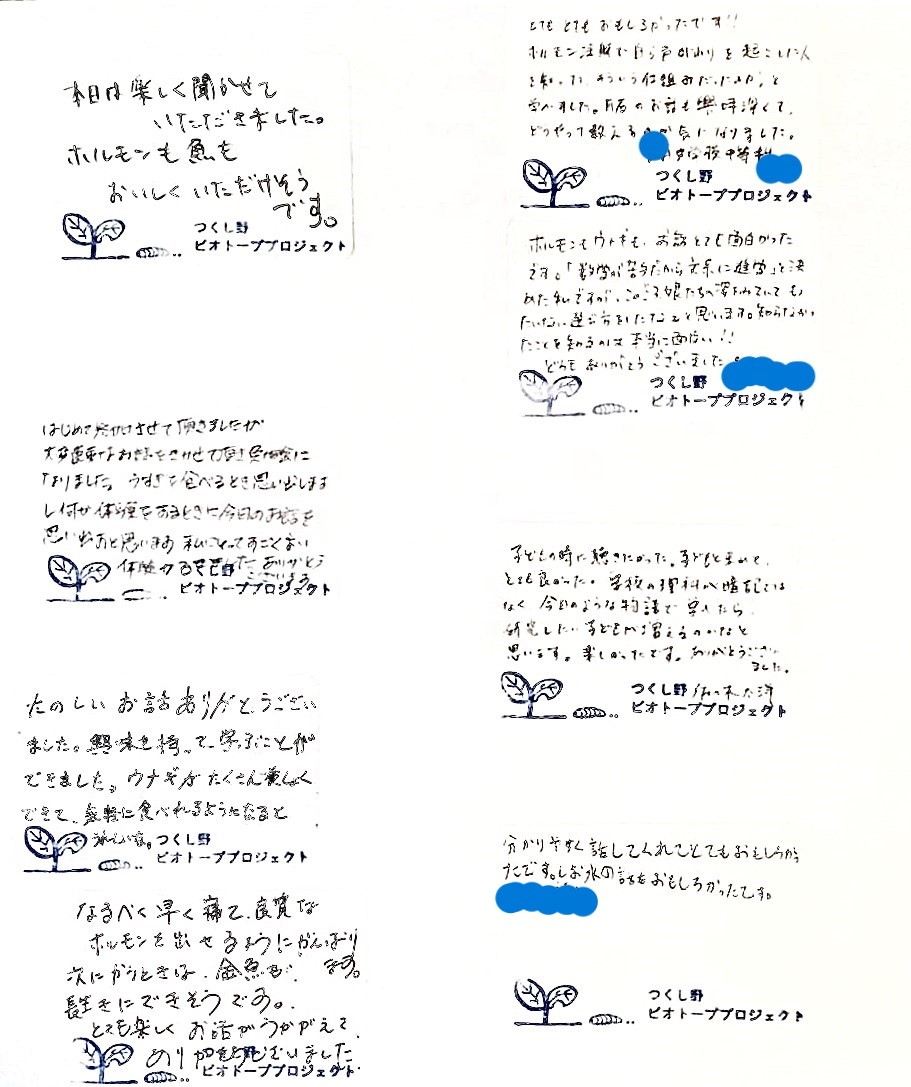 本日は楽しく聞かせて
いただきました。
ホルモンも魚も
おいしくいただけそう
です。
つくし野
ビオトーププロジェクト
はじめて参加させて頂きましたが
大変貴重なお話をきかせて頂き
なりました。うなぎを食べるとき思い出しま
し何か体験をするときに今日のお話を
思い出すと思います 私にとってすごくよい
体験 ありがとう
ございます
つくし野
ビオトーププロジェクト
たのしいお話ありがとうござい
ました。興味を持って学ぶことが
できました。ウナギがたくさん養しょく
できて、気軽に食べれるようになると
うれしいな。
つくし野
ビオトーププロジェクト
なるべく早く寝て、良質な
ホルモンを出せるようにがんばり
ます。
次にかうときは、金魚も
長生きにできそうです。
とても楽しくお話がうかがえて
ありがとうございました
つくし野
ビオトーププロジェクト
とてもとてもおもしろかったです!!
ホルモン注射で を起こした人
を知った、そういう仕組みだったのか、と
学べました。 のお話も興味深くて、
どうやって数える か気になりました。
つくし野
ビオトーププロジェクト
ホルモンもウナギも、お話とても面白かった
です。「数学が苦手だから文系に進学」と決
めた私ですが、このごろ娘たちの姿をみていても
たいない選び方をしたなぁと思います。知らなかっ
たことを知るのは本当に面白い!!
どうもありがとうございました。
つくし野
ビオトーププロジェクト
子どもの時に聴きたかった。子どもと来れて、
とても良かった。学校の理科が暗記では
なく 今日のような物語で学べたら、
研究したい子どもが増えるのかなと
思います。楽しかったです。ありがとうござい
ました。
つくし野
ビオトーププロジェクト
分かりやすく話してくれてとてもおもしろかっ
たです。しお水の話もおもしろかったです。
つくし野
ビオトーププロジェクト